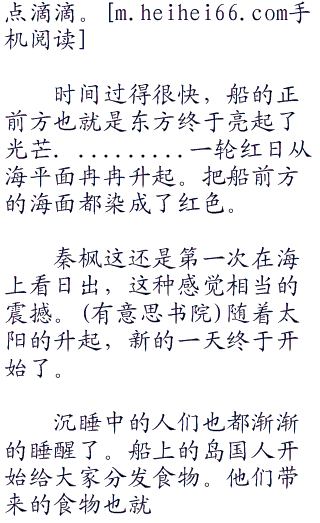 点滴滴。[m.heihei66.com手
机阅读]
时间过得很快，船的正
前方也就是东方终于亮起了
光芒. .........一轮红日从
海平面冉冉升起。把船前方
的海面都染成了红色。
秦枫这还是第一次在海
上看日出，这种感觉相当的
震撼。(有意思书院)随着太
阳的升起，新的一天终于开
始了。
沉睡中的人们也都渐渐
的睡醒了。船上的岛国人开
始给大家分发食物。他们带
来的食物也就